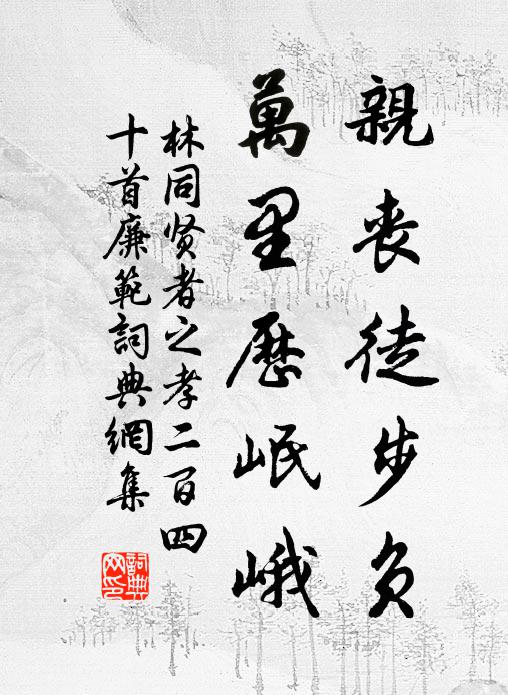 親喪徒步負
萬里歷岷峨
林同賢者之孝二百四
十首廉範詞典網集
詞典網印